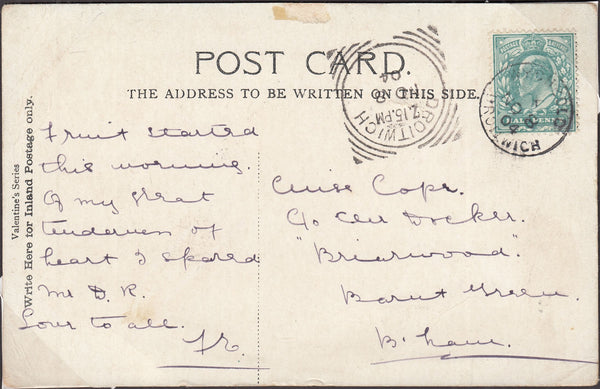 POST CARD.
THE ADDRESS TO BE WRITTEN ON THIS SIDE.
Valentine's Series
Write Here for Inland Postage only.
Fruit started
this morning.
Of my great
tenderness of
heart I spared
Mr D. R.
Love to all.
Miss Cope.
C/o Docker.
"Briarwood."
Barnt Green.
B'ham.
DROITWICH
2.15.PM
HALFPENNY